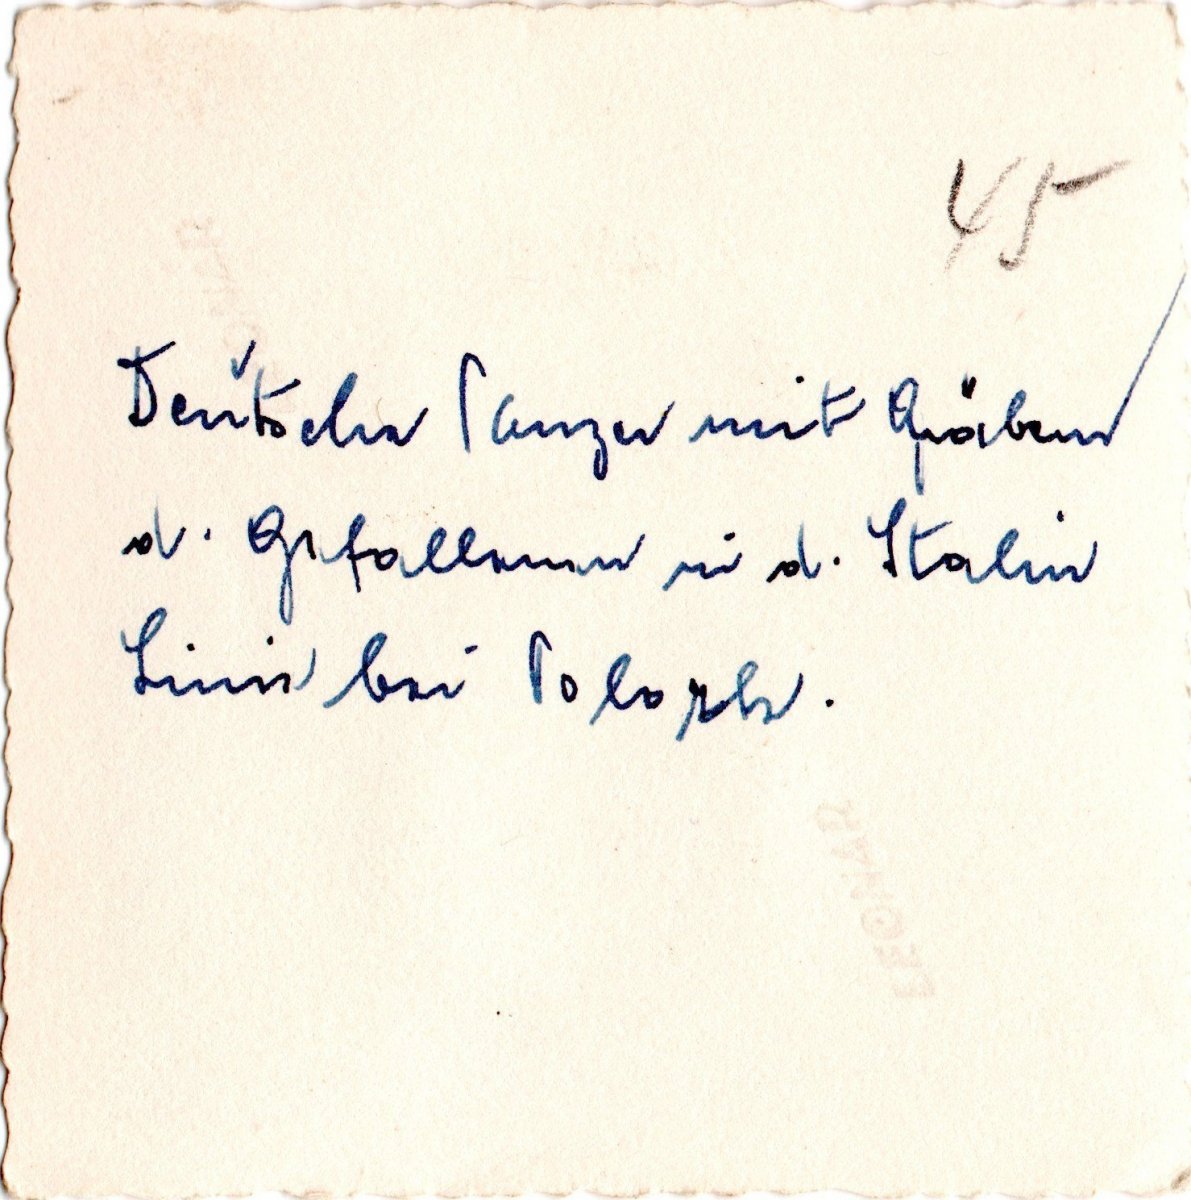 45
Deutsche Panzer mit Gräbern
d. Gefallenen in d. Stalin
Linie bei Polozk.
LEONAR